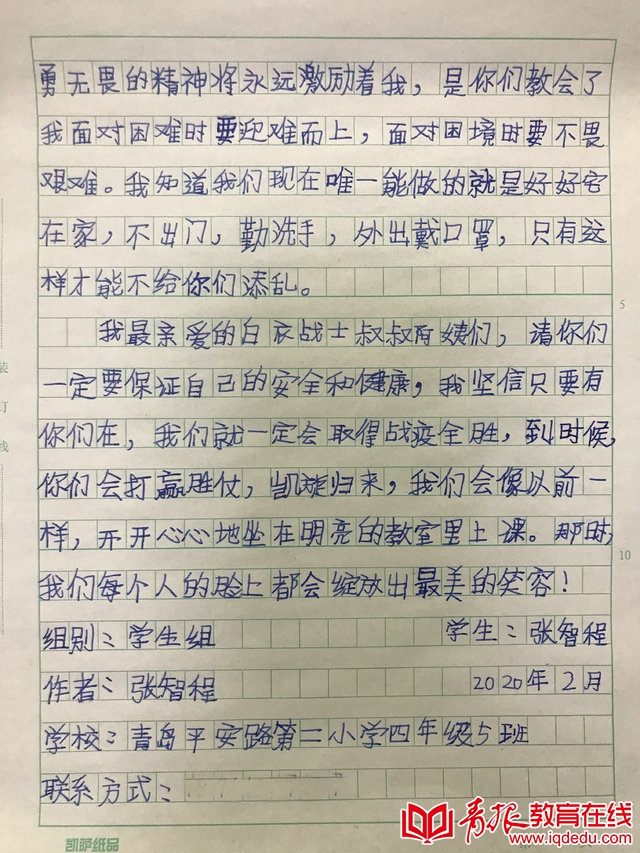 勇无畏的精神将永远激励着我，是你们教会了
我面对困难时要迎难而上，面对困境时要不畏
艰难。我知道我们现在唯一能做的就是好好宅
在家，不出门，勤洗手，外出戴口罩，只有这
样才能不给你们添乱。
我最亲爱的白衣战士叔叔阿姨们，请你们
一定要保证自己的安全和健康，我坚信只要有
你们在，我们就一定会取得战疫全胜，到时候，
你们会打赢胜仗，凯旋归来，我们会像以前一
样，开开心心地坐在明亮的教室里上课。那时，
我们每个人的脸上都会绽放出最美的笑容！
组别：学生组 学生：张智程
作者：张智程 2020年2月
学校：青岛平安路第二小学四年级5班
联系方式：
5
10
装
订
线
凯萨纸品
青报教育在线
www.iqdedu.com